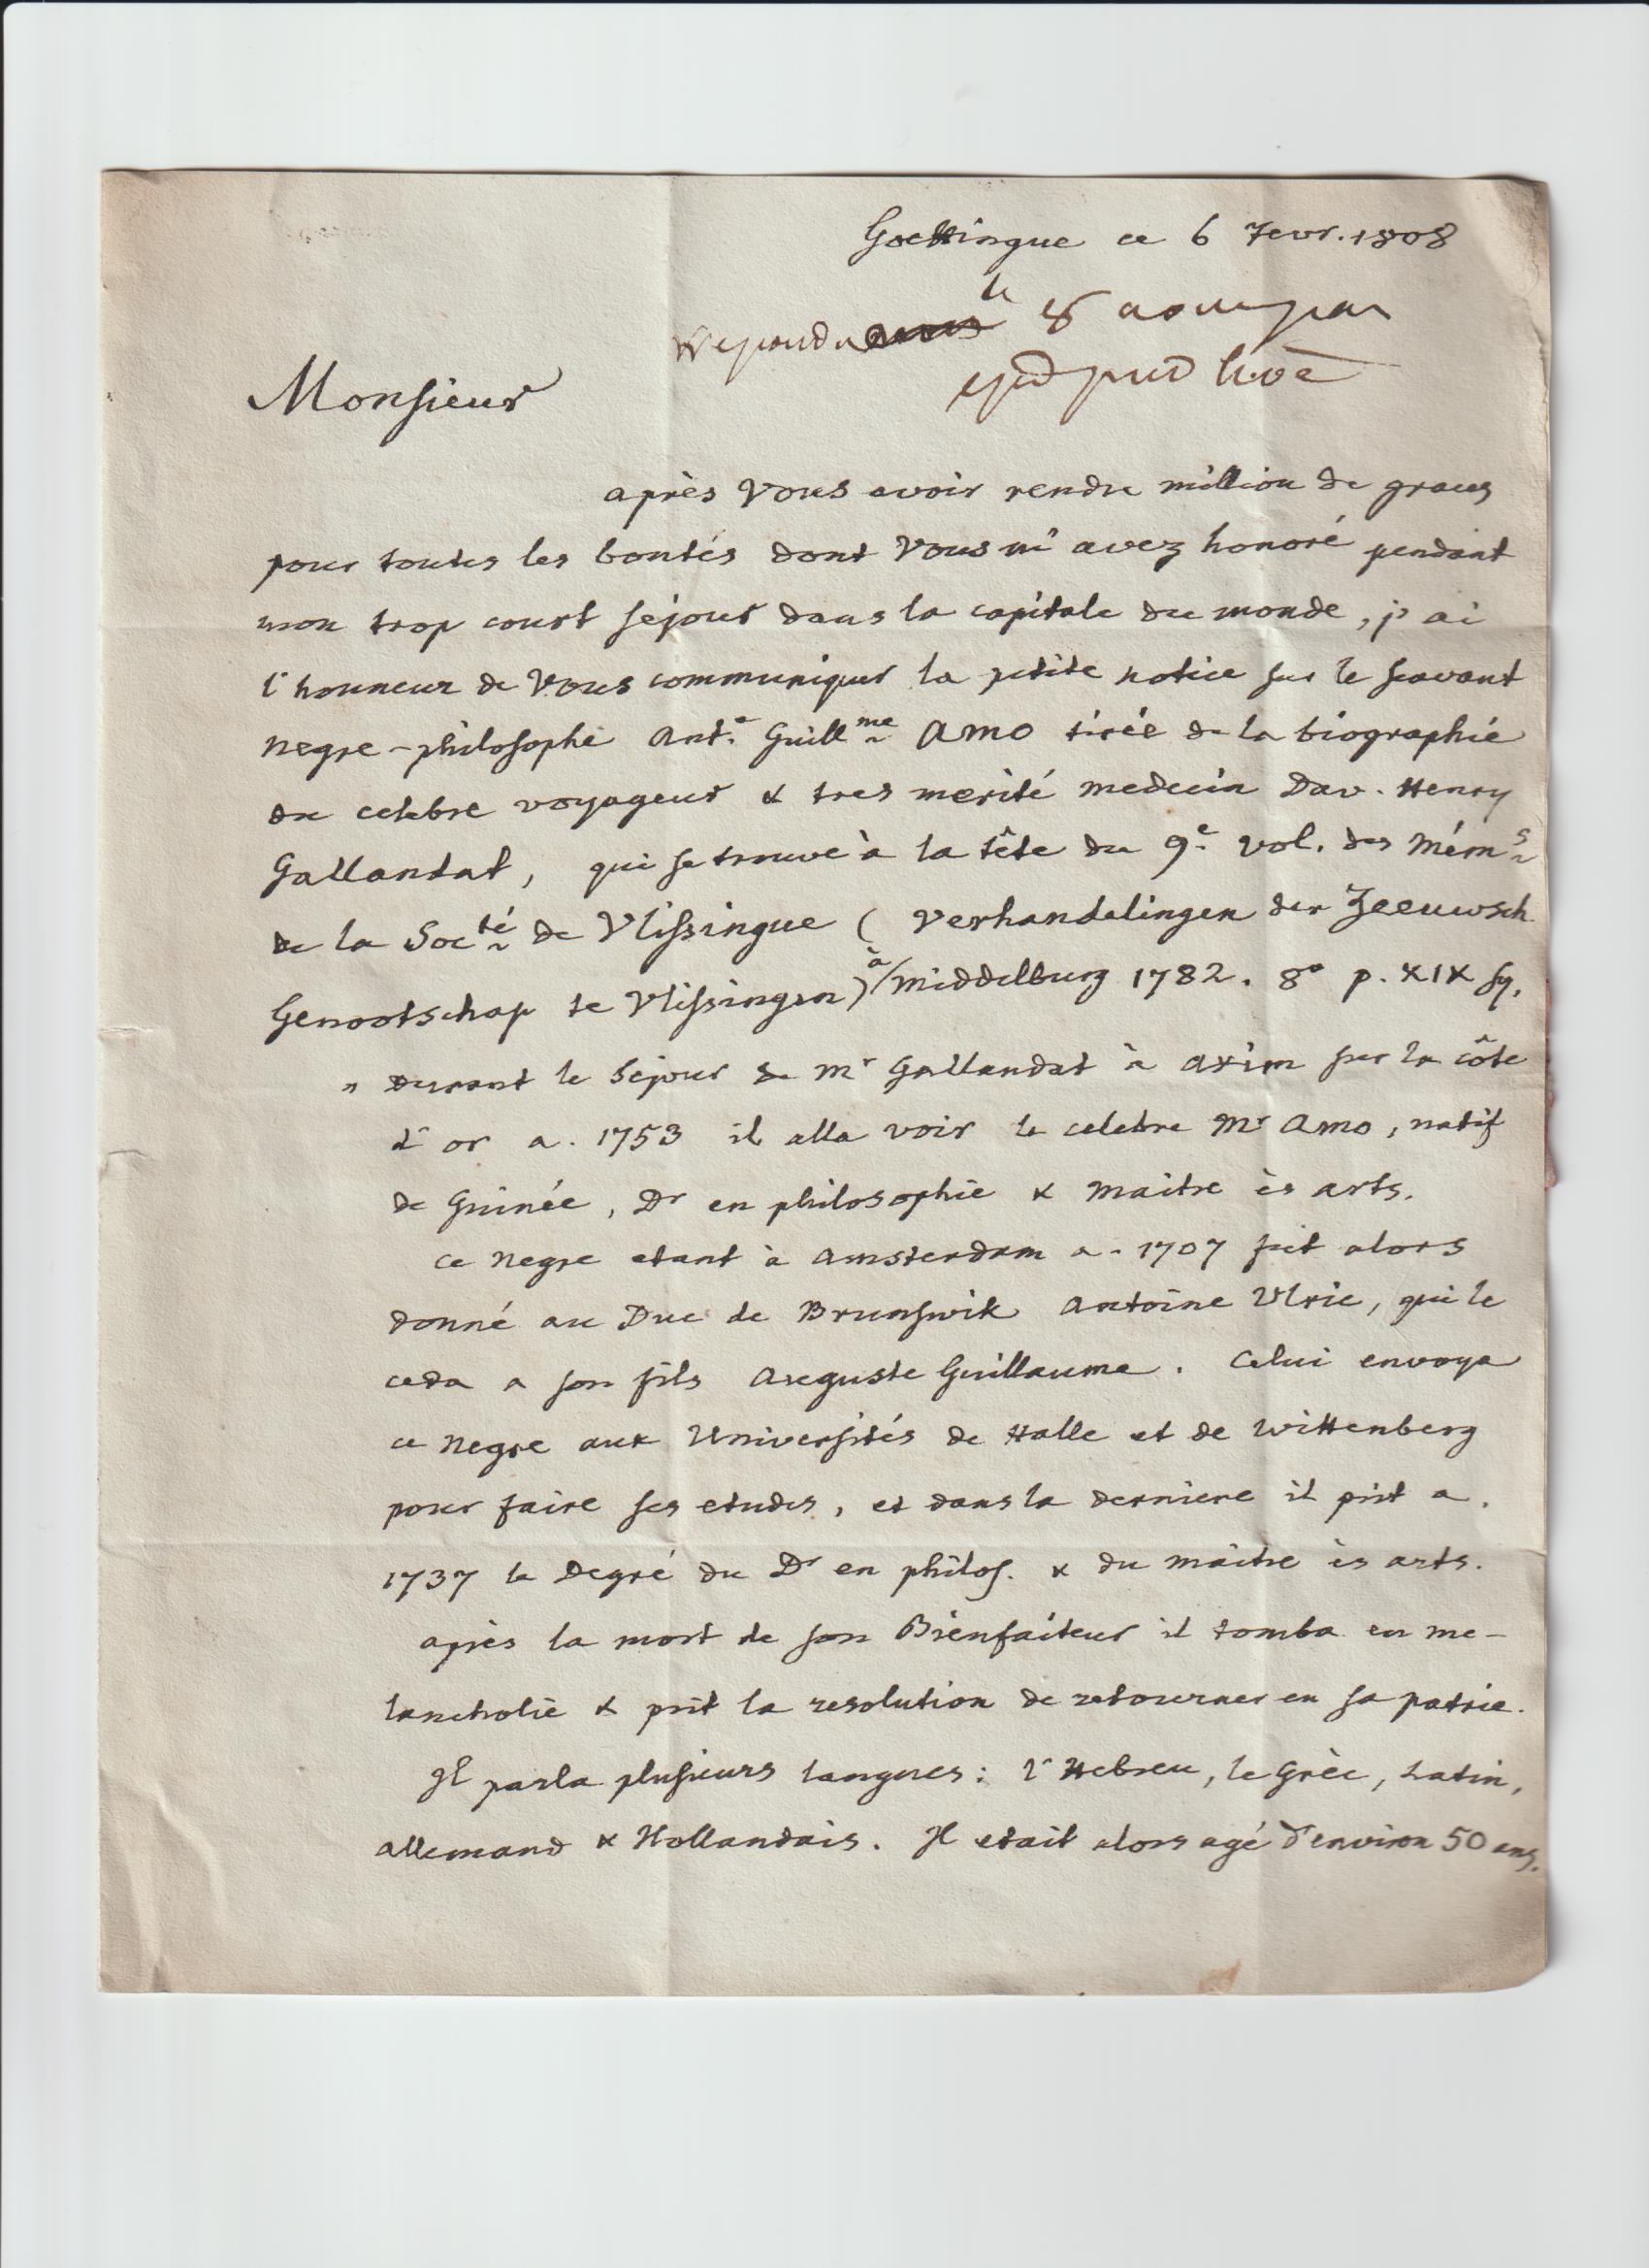 Goettingue ce 6 Fevr. 1808
Repondu le 8
Monsieur
après Vous avoir rendu million de graces
pour toutes les bontés dont Vous m'avez honoré pendant
mon trop court sejour dans la capitale du monde, j'ai
l'honneur de Vous communiquer la petite notice sur le scavant
negre-philosophe Ant.e Guillme Amo tirée de la biographie
du celebre voyageur & tres merité medecin Dav. Henry
Gallandat, qui se trouve à la tête du 9e vol. des Méms
de la Socté de Vlissingue (Verhandelingen der Zeeuwsch
Genootschap te Vlissingen) à Middelburg 1782. 8° p. XIX sq.
" Durant le sejour de Mr Gallandat à Axim sur la côte
d'or a. 1753 il alla voir le celebre Mr Amo, natif
de Guinée, Dr en philosophie & maitre ès arts.
Ce Negre etant à Amsterdam a. 1707 fut alors
donné au Duc de Brunswik Antoine Ulric, qui le
ceda a son fils Auguste Guillaume. Celui envoya
ce Negre aux Universités de Halle et de Wittenberg
pour faire ses etudes, et dans la derniere il prit a.
1737 le Degré du Dr en philos. & du maitre ès arts.
après la mort de son Bienfaiteur il tomba en me-
lancholie & prit la resolution de retourner en sa patrie.
Il parla plusieurs langues: l'Hebreu, le Grèc, Latin,
Allemand & Hollandais. Il etait alors agé d'environ 50 ans.